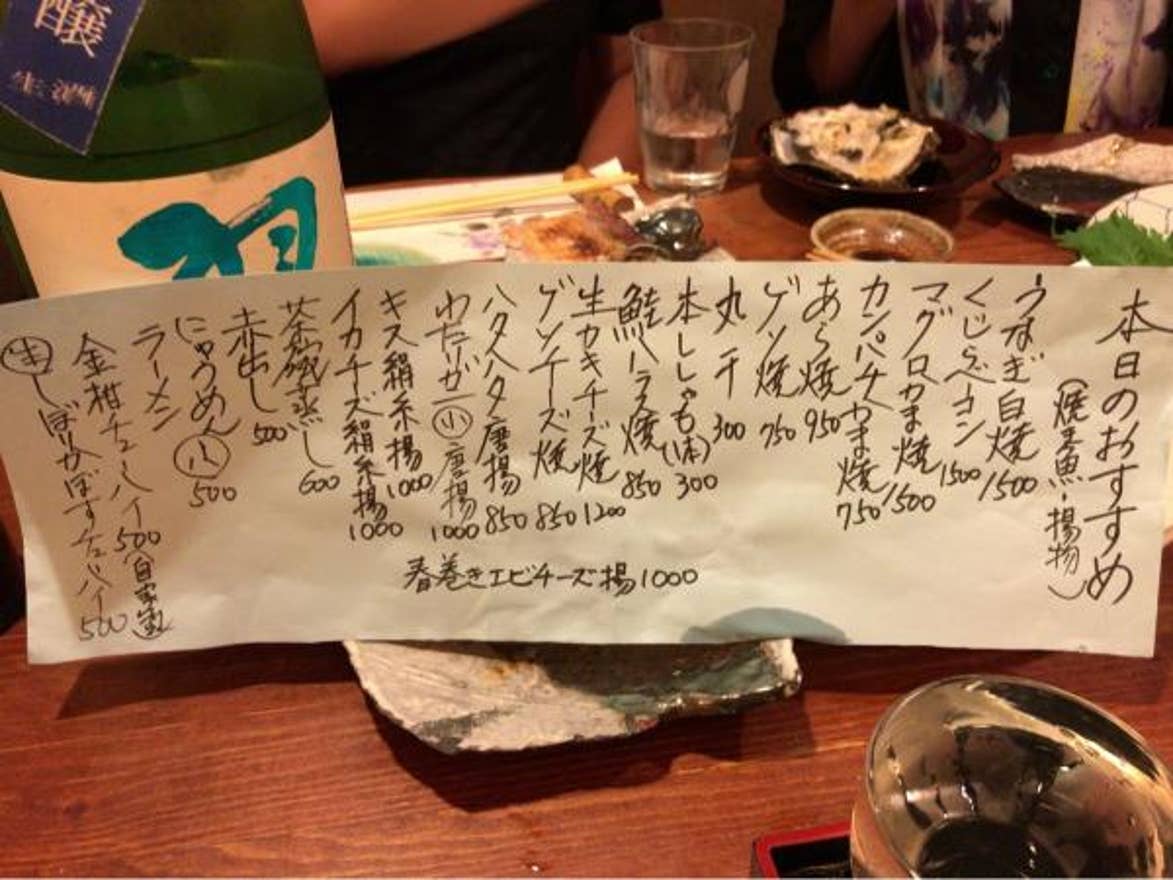 本日のおすすめ
(焼き魚・揚物)
うなぎ白焼 1500
くじらベーコン 1500
マグロカま焼 1500
カンパチかま焼 750
あら焼 950
ゲソ焼 750
丸干 300
本ししゃも(1本) 300
鮭ハラス焼 850
生カキチーズ焼 1200
ゲソチーズ焼 850
ハタハタ唐揚 850
わたりガニ小唐揚 1000
キス絹糸揚 1000
イカチーズ絹糸揚 1000
茶碗蒸し 600
赤出し 500
にゅうめん 小 500
ラーメン
金柑チューハイ 500(自家製)
生しぼりかぼすチューハイ 500
春巻きエビチーズ揚1000
醸
生
羽